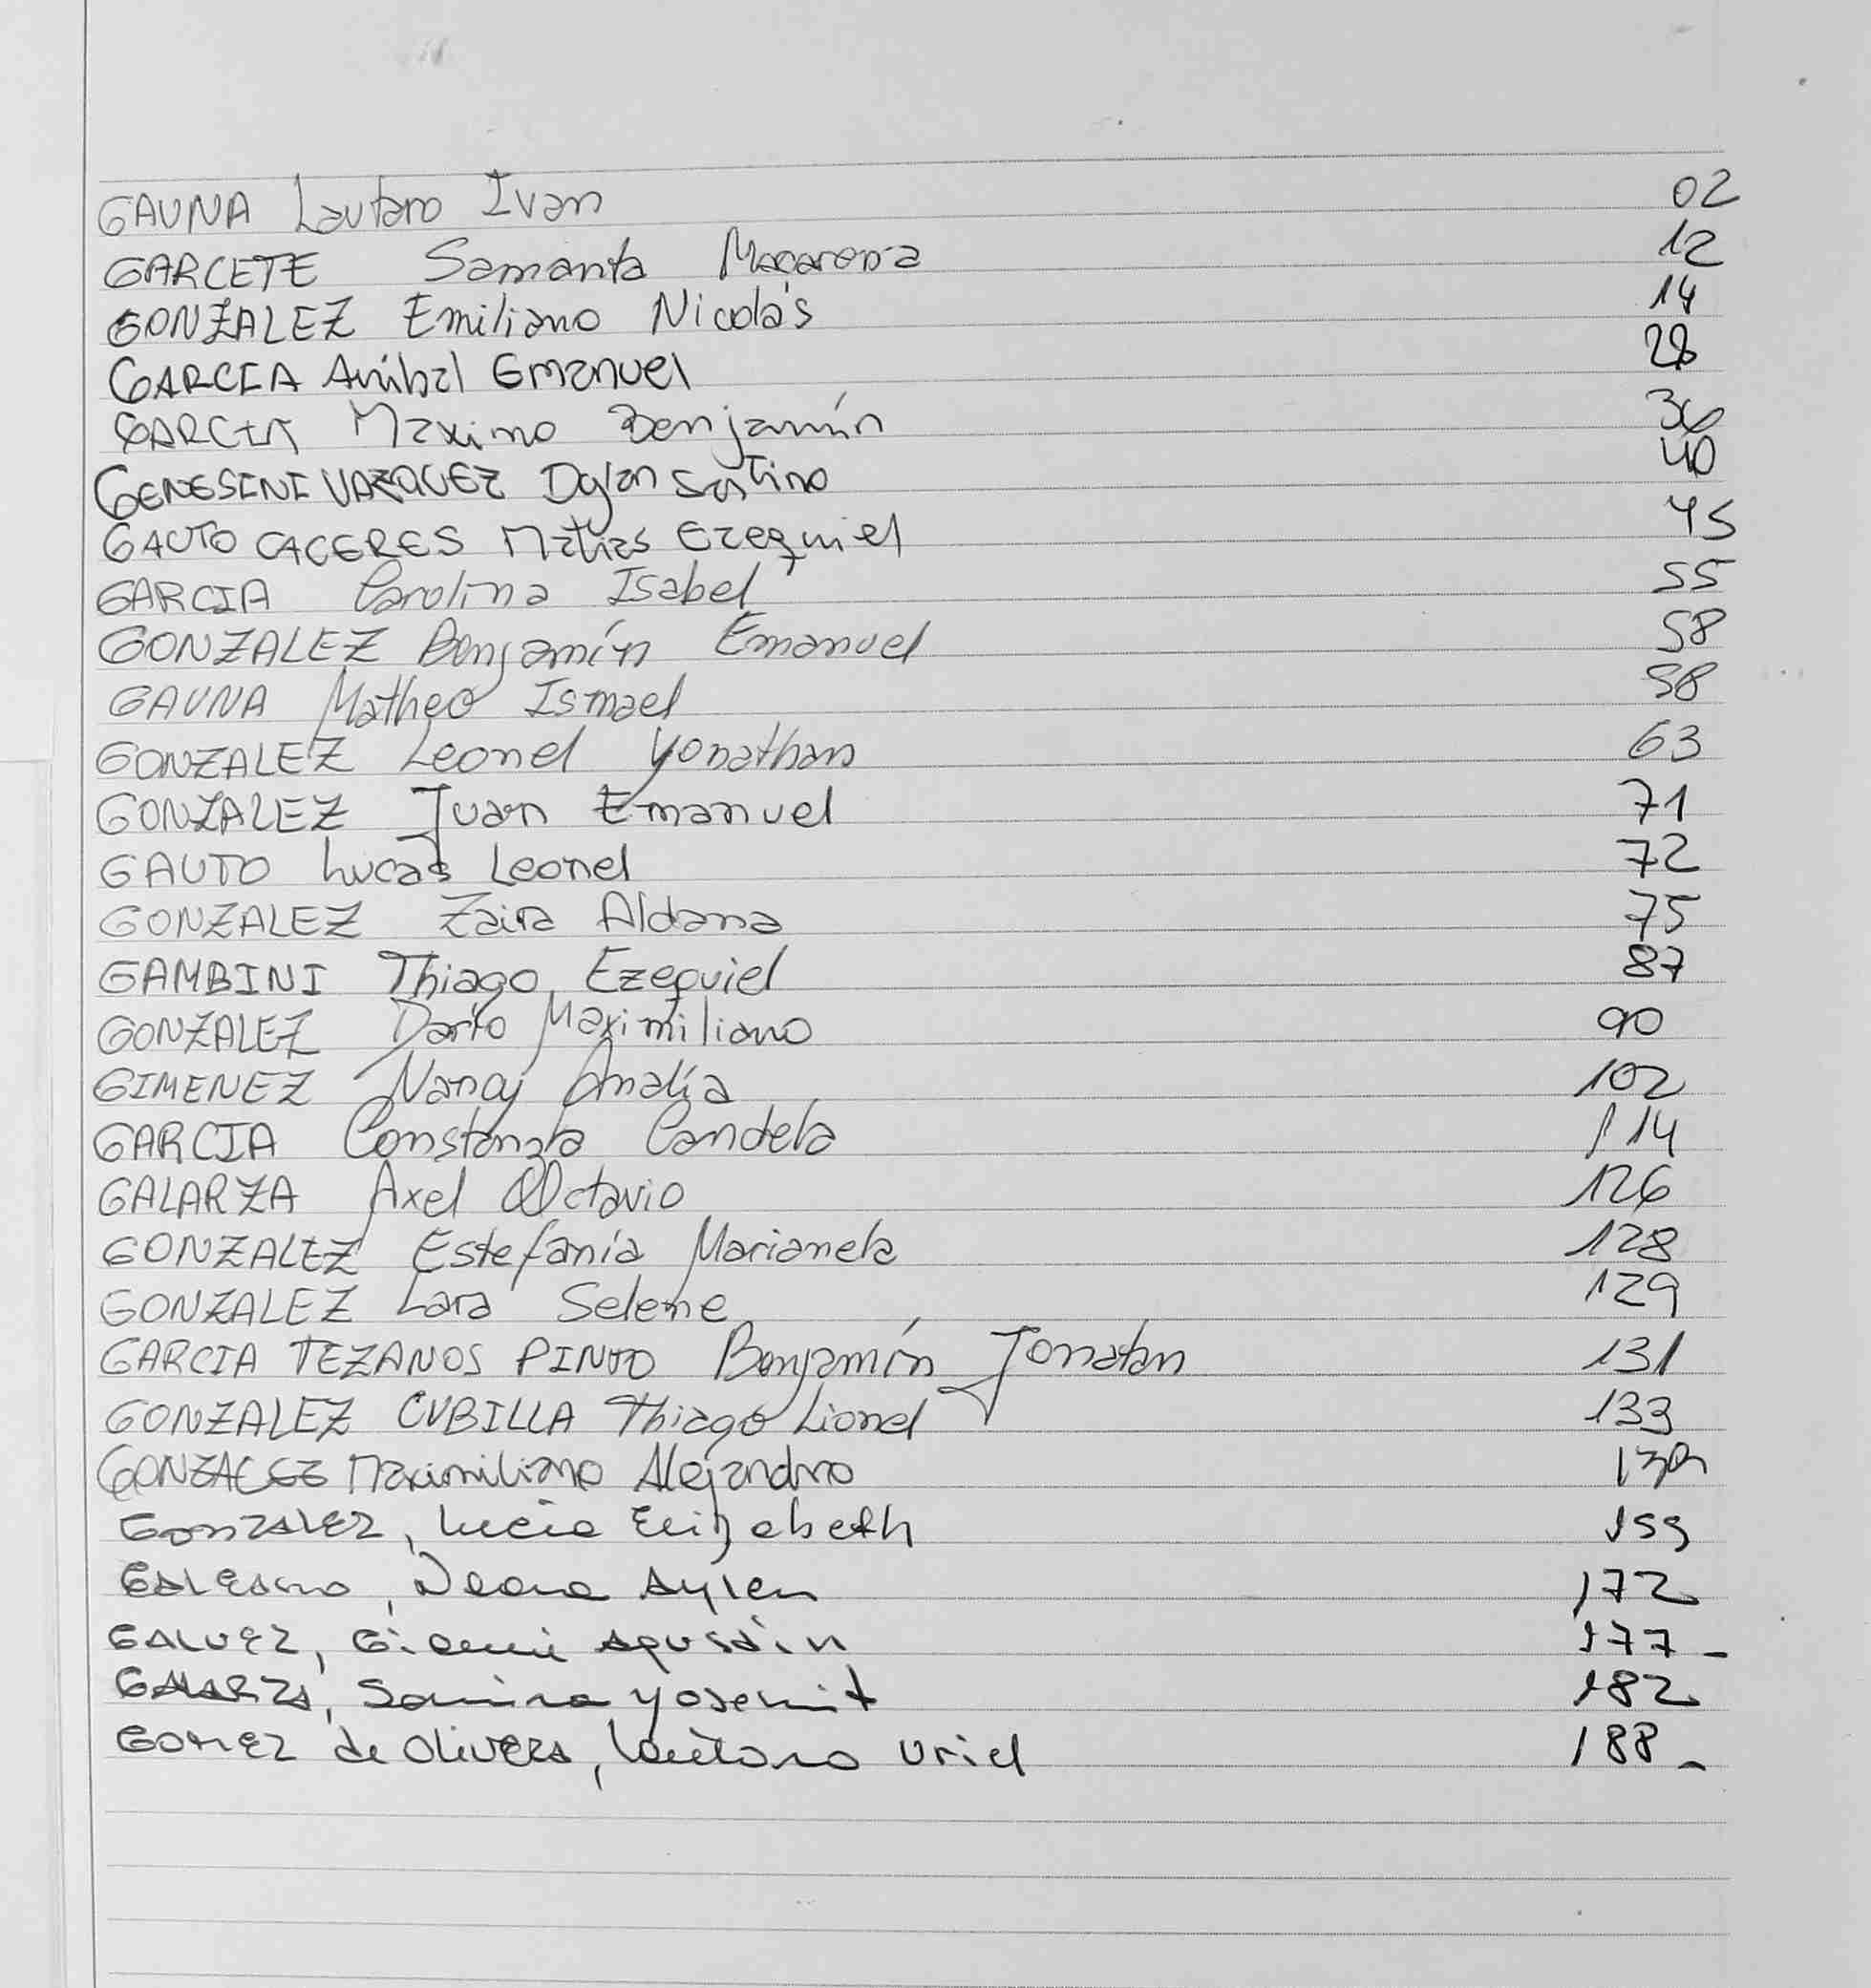 GAUNA Lautaro Ivan 02
GARCETE Samanta Macarena 12
GONZALEZ Emiliano Nicolás 14
GARCIA Anibal Emanuel 28
GARCIA Maximo Benjamín 36
GENESINI VAZQUEZ Dylan Santino 40
GAUTO CACERES Matias Ezequiel 45
GARCIA Carolina Isabel 55
GONZALEZ Benjamín Emanuel 58
GAUNA Matheo Ismael 58
GONZALEZ Leonel Yonathan 63
GONZALEZ Juan Emanuel 71
GAUTO Lucas Leonel 72
GONZALEZ Zaira Aldana 75
GAMBINI Thiago Ezequiel 87
GONZALEZ Darío Maximiliano 90
GIMENEZ Nancy Analía 102
GARCIA Constanza Candela 114
GALARZA Axel Octavio 126
GONZALEZ Estefanía Marianela 128
GONZALEZ Lara Selene 129
GARCIA TEZANOS PINTO Benjamín Jonatan 131
GONZALEZ CUBILLA Thiago Lionel 133
GONZALEZ Maximiliano Alejandro
GONZALEZ, Lucia Elizabeth 159
Aylen 172
GALVEZ, Gianni Agustin 177
GALARZA, Samira Yosemit 182
GOMEZ de OLIVERA, Lautaro Uriel 188